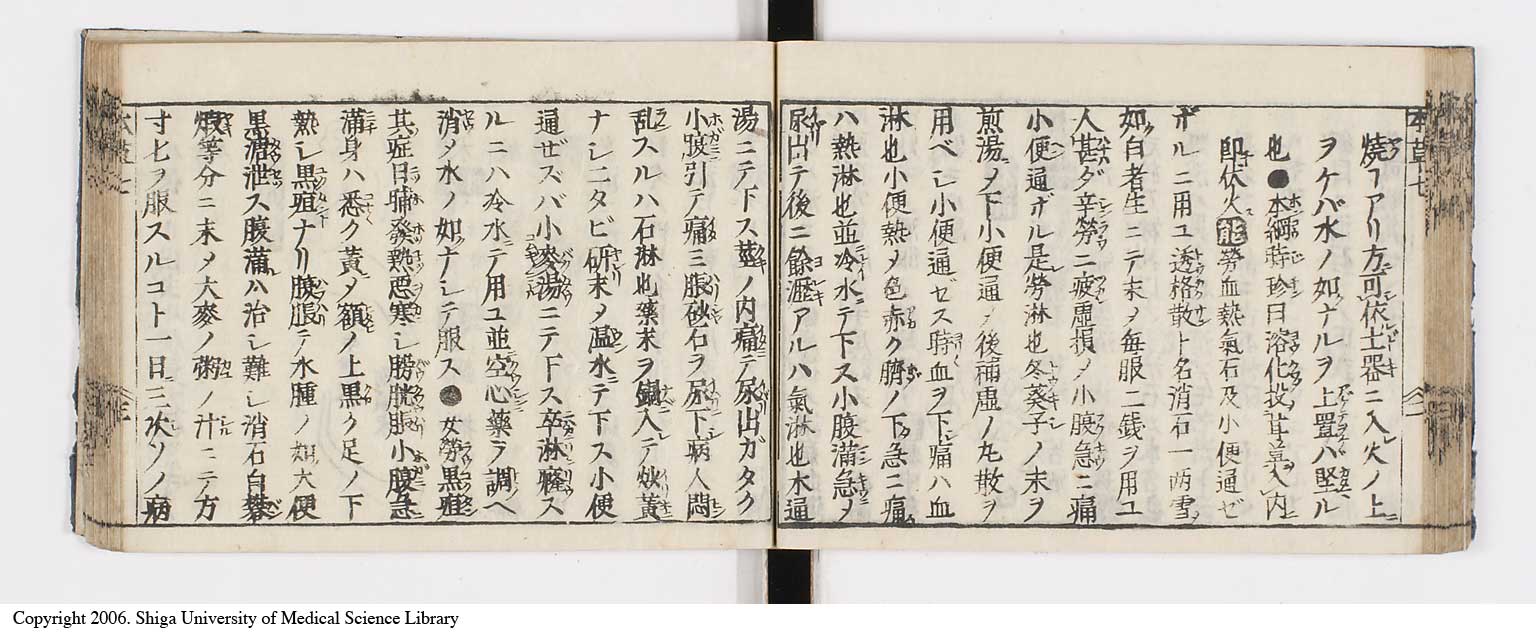 本草七
燒フアリ方可依土器ニ入火ノ上
ヲケバ水ノ如ナルヲ上置ハ堅ル
也●本綱時珍曰溶化投甘草入内
即伏火能勞血熱氣石及小便通ゼ
ザルニ用ユ透格散ト名消石一两雪
如白者生ニテ末ヲ毎服二銭ヲ用ユ
人甚ダ辛勞ニ疲虚損〆小腹急ニ痛
小便通ザル是勞淋也冬葵子ノ末ヲ
煎湯〆下小便通〆後補虚ノ丸散ヲ
用ベシ小便通ゼス時血ヲ下痛ハ血
淋也小便熱〆色赤ク臍ノ下急ニ痛
ハ熱淋也並冷水ニテ下ス小腹滿急〆
尿出テ後ニ餘瀝アルハ氣淋也木通
湯ニテ下ス莖ノ内痛テ尿出ガタク
小腹引テ痛ミ脹砂石ヲ尿下病人悶
乱スルハ石淋也藥末ヲ鍋入テ炒黃
ナシ二タビ研末〆温水ニテ下ス小便
通ゼズバ小麥湯ニテ下ス卒淋癃ス
ルニハ冷水ニテ用ユ並空心藥ヲ調ヘ
消〆水ノ如ナシテ服ス●女勞黒疸
其症日晡發熱惡寒シ膀胱脹小腹急
滿身ハ悉ク黃〆額ノ上黒ク足ノ下
熱シ黒疸ナリ腹脹テ水腫ノ類大便
黒溏泄ス腹滿ハ治シ難シ消石白礬
煆等分ニ末〆大麥ノ粥ノ汁ニテ方
寸七ヲ服スルコト一日ニ三次ソノ病